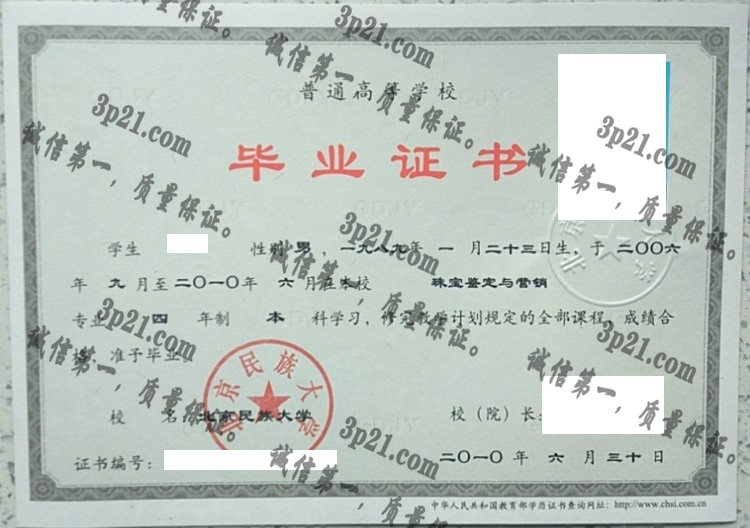 普通高等学校
毕业证书
学生 性别 男，一九八九年 一 月二十三日生，于 二〇〇六
年 九 月至 二〇一〇年 六 月在本校 珠宝鉴定与营销
专业 四 年制 本 科学习，修完教学计划规定的全部课程，成绩合
格，准予毕业。
校 名：北京民族大学 校（院）长：
证书编号： 二〇一〇 年 六 月 三十 日
中华人民共和国教育部学历证书查询网址：http://www.chsi.com.cn
北京民族大学
3p21.com
诚信第一，质量保证。
3p21.com
诚信第一，质量保证。
3p21.com
诚信第一，质量保证。
3p21.com
诚信第一，质量保证。
3p21.com
诚信第一，质量保证。
3p21.com
诚信第一，质量保证。
3p21.com
诚信第一，质量保证。
质量保证。